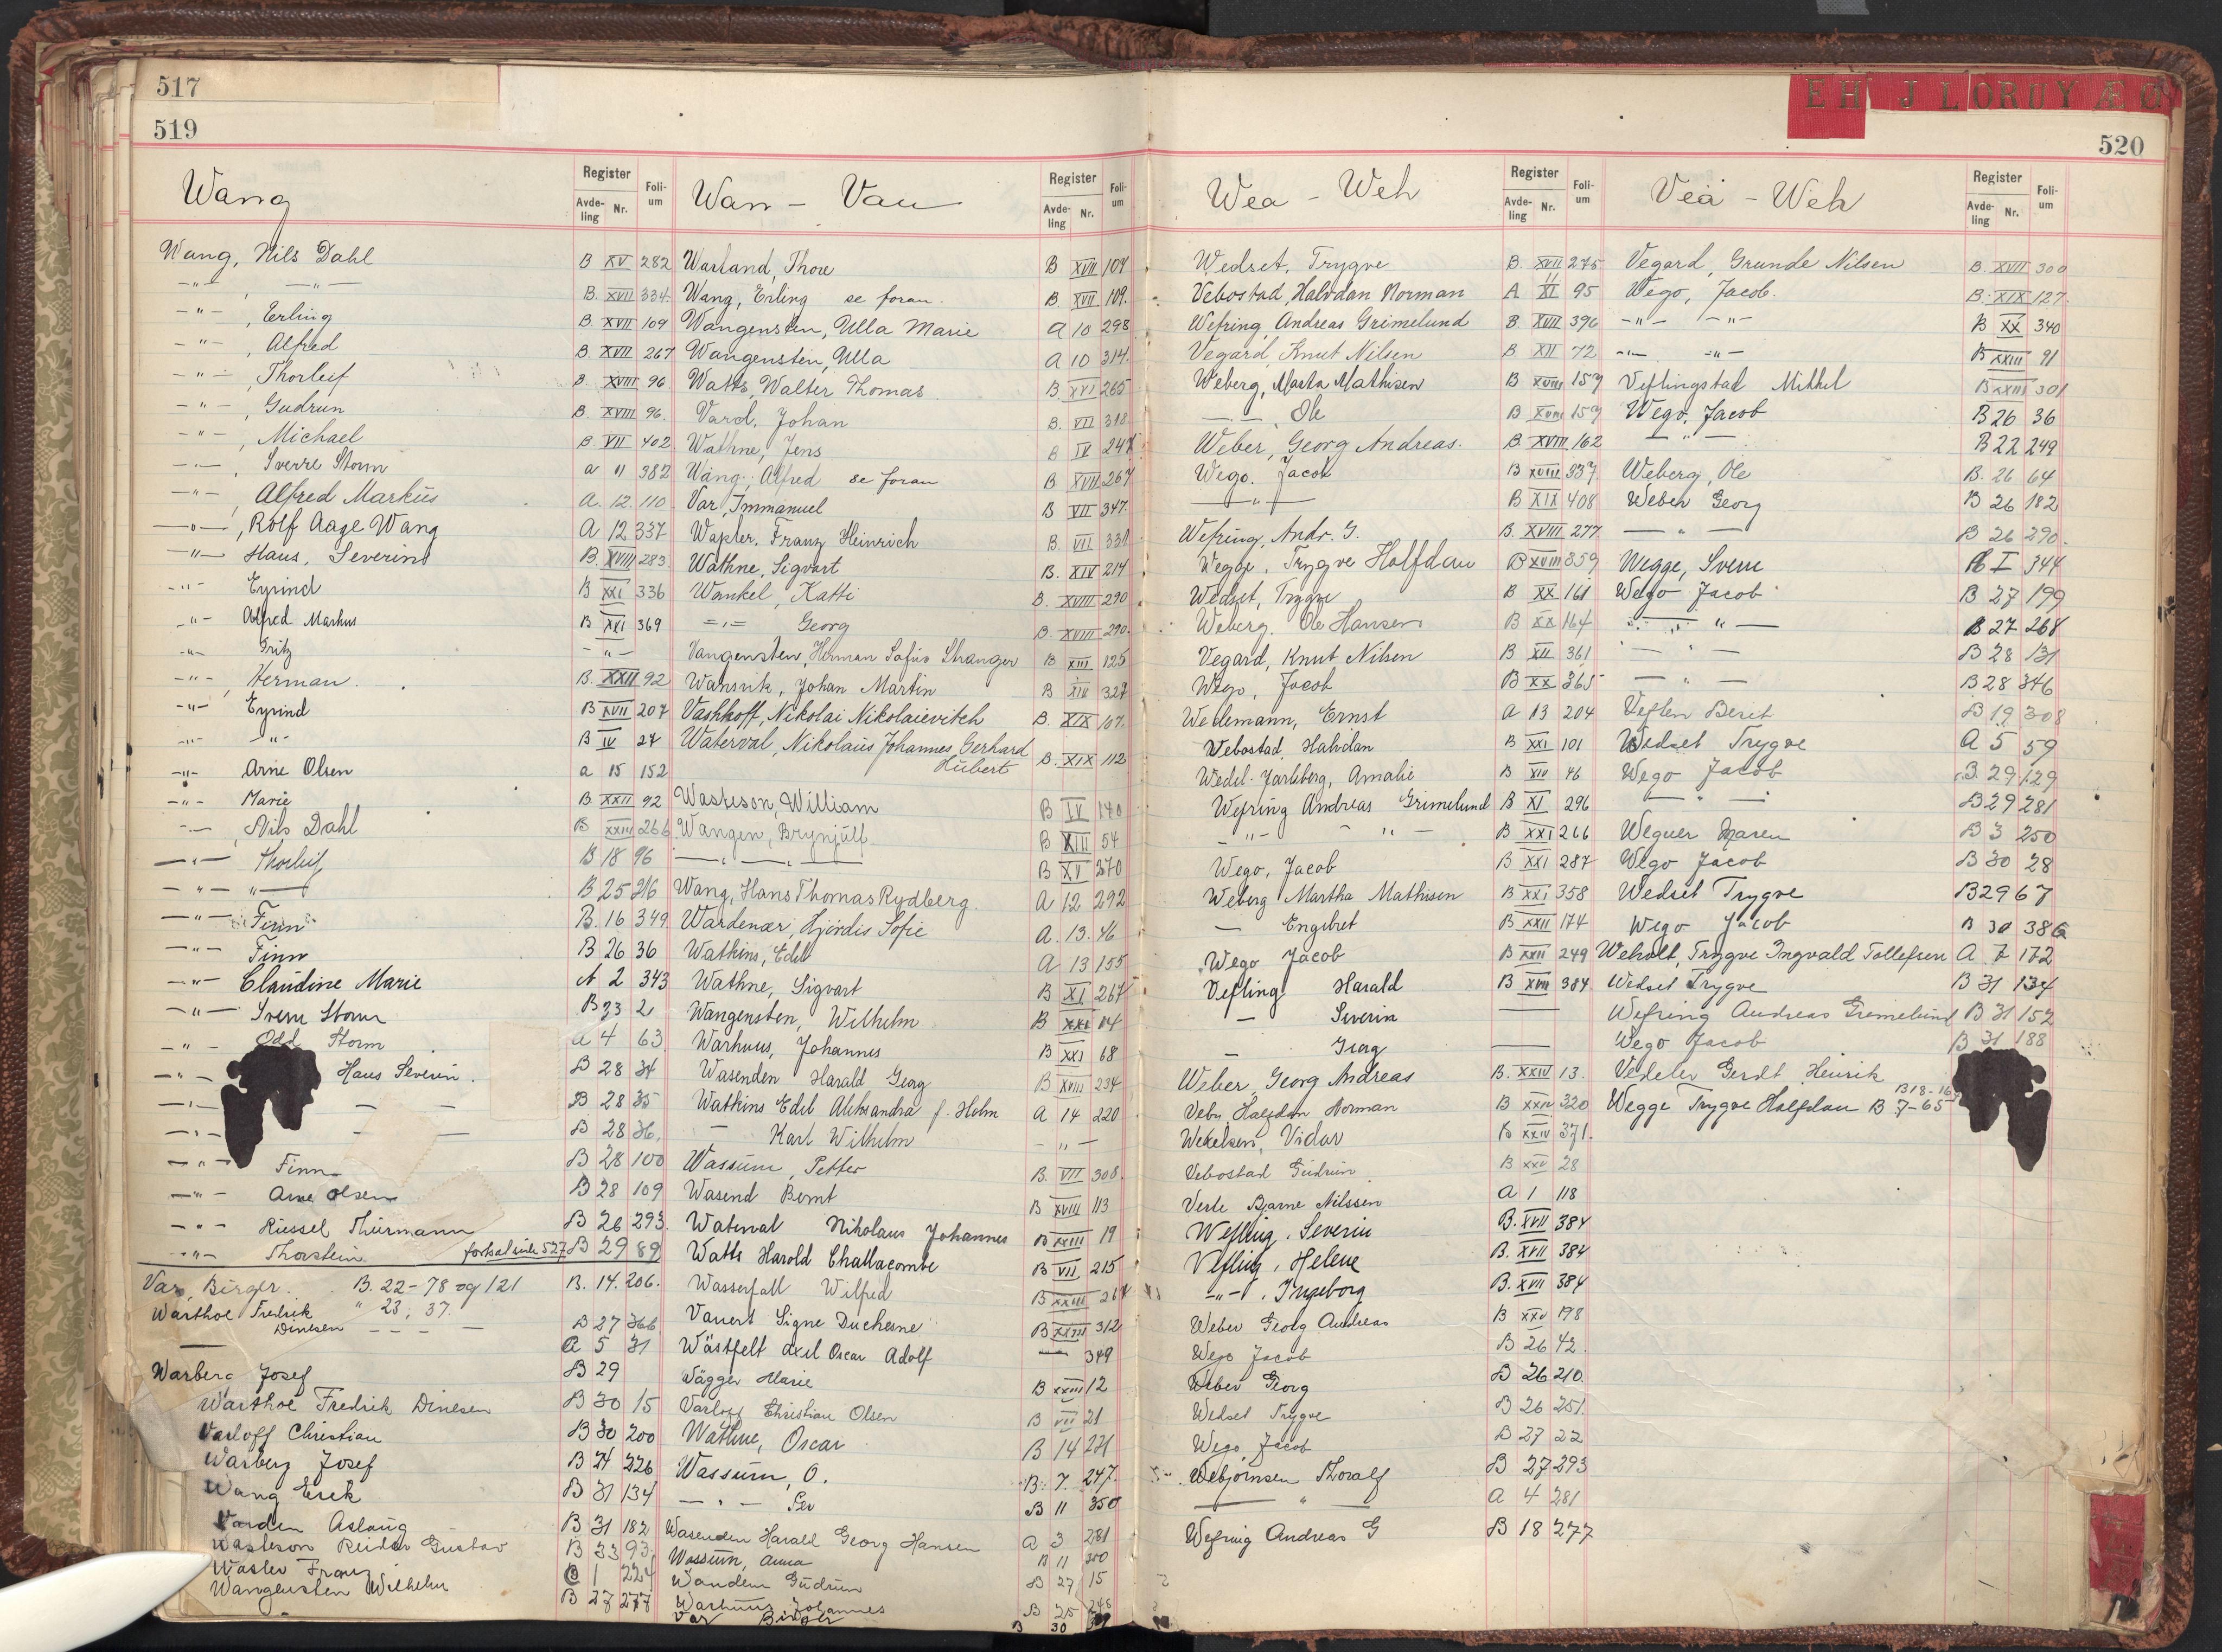 517
519
Wang
Register
Avde-ling Nr. Foli-um
Wang, Nils Dahl B XV 282
-"- -"- B. XVII 334
-"-, Erling B XVII 109
-"-, Alfred B. XVII 267
-"-, Thorleif B. XVIII 96
-"-, Gudrun B. XVIII 96.
-"-, Michael B VII 402
-"-, Sverre Storm a 11 382
-"- Alfred Markus A. 12. 110
-"-, Rolf Aage Wang A 12 337
-"- Hans, Severin B. XVIII 283
-"- Eyvind B XXI 336
-"- Alfred Markus B XVI 369
-"- Fritz -"-
-"-, Herman. B. XXII 92
-"- Eyvind B XVII 207
-"- -"- B IV 24
-"- Arne Olsen a 15 152
-"- Marie B XXII 92
-"-, Nils Dahl B XXIII 266
-"- Thorleif B 18 96
-"- -"- B 25 216
-"- Finn B. 16 349
-"- Finn B 26 36
-"- Claudine Marie A 2 343
-"- Sverre Storm B 23 2
-"- Odd Storm a 4 63
-"- Hans Severin. B 28 34
-"- — — B 28 35
-"- — — B 28 36.
-"- Finn B 28 100
-"- Arne Olsen B 28 109
-"- Russel Thurmann B 26 293
-"- Thorstein fortsat side 527 B 29 89
Var, Birger. B. 22-78 og 121 B. 14. 206.
Warthoe Fredrik " 23, 37.
Dinesen - - - B 27 366
— A 5 31
Warberg Josef B 29
Warthoe Fredrik Dinesen B 30 15
Varloff Christian B 30 200
Warberg Josef B 24 226
Wang Erik B 31 134
Varden Aslaug B 31 182
Wasteson Reidar Gustav B 33 93
Wasler Franz B 1 224
Wangensten Wilhelm B 27 277
Wan - Vau
Register
Avde-ling Nr. Foli-um
Warland, Thore B XVII 104
Wang, Erling se foran. B. XVII 109.
Wangensten, Ulla Marie A 10 298
Wangensten, Ulla A 10 314
Watts, Walter Thomas B. XVI 265
Vard, Johan B. VII 318
Wathne, Jens B IV 247
Wang, Alfred se foran B XVII 267
Var, Immanuel B VII 347
Wapler, Franz Heinrich B. VII 331
Wathne, Sigvart B. XIV 214
Wankel, Katti B. XVIII 290
-"- Georg B. XVIII 290.
Vangensten, Herman Sofus Stranger B XIII 125
Wansvik, Johan Martin B XIV 327
Vashkoff, Nikolai Nikolaievitch B. XIX 107.
Waterval, Nikolaus Johannes Gerhard
Hubert B. XIX 112
Wasteson, William B IV 140
Wangen, Brynjulf B XIII 54
-"- -"- B XV 370
Wang, Hans Thomas Rydberg. A 12 292
Wardenær, Hjördis Sofie A. 13. 46
Watkins, Edel A 13 155
Wathne, Sigvart B XI 267
Wangensten, Wilhelm B XXI 14
Warhuus, Johannes B XXI 68
Wasenden Harald Georg B XVIII 234
Watkins Edel Aleksandra f. Holm A 14 220
— Karl Wilhelm -"-
Wassum, Petter B. VII 308.
Wasend Bernt B XVIII 113
Waterval Nikolaus Johannes B XXIII 19
Watts Harold Challacombe B VII 215
Wasserfall Wilfred B XXIII 267
Vauert Signe Duchesne B XXIII 312
Wästfelt Axel Oscar Adolf — 349
Wägger Marie B XXIII 12
Varloff Christian Olsen B VII 21
Wathne, Oscar B 14 231
Wassum, O. B. 7. 247.
-"- Per B 11 350
Wasenden Harald Georg Hansen A 3 281
Wassum, Anna B 11 350
Wandem Gudrun B 27 15
Warhuus Johannes B 25 248
Var Birger B 30
E H J L O R U Y Æ Ø
520
Wea - Weh
Register
Avde-ling Nr. Foli-um
Wedset, Trygve B. XVII 275
Vebostad, Halvdan Norman A XI 95
Wefring, Andreas Grimelund B. XVII 396
Vegard, Knut Nilsen B XII 72
Weberg, Marta Mathisen B XVIII 159
—, Ole B XVIII 159
Weber, Georg Andreas. B. XVIII 162
Wego, Jacob B XVIII 337
—"— B XIX 408
Wefring, Andr. G. B. XVIII 277
Wegge, Trygve Halfdan B XVIII 359
Wedset, Trygve B XX 161
Weberg. Ole Hansen B XX 164
Vegard, Knut Nilsen B XII 361
Wego, Jacob B XX 365
Wedemann, Ernst a 13 204
Vebostad, Halvdan B XXI 101
Wedel-Jarlsberg, Amalie B XIV 46
Wefring Andreas Grimelund B XI 296
-"- -"- B XXI 266
Wego, Jacob B XXI 287
Weberg Martha Mathisen B XXI 358
— Engebret B XXII 174
Wego Jacob B XXII 249
Vefling Harald B XVII 384
— Severin —
— Georg —
Weber, Georg Andreas B. XXIV 13.
Veby Halfdan Norman B XXIV 320
Wekelsen, Vidar B XXIV 371.
Vebostad Gudrun B XXV 28
Verle Bjarne Nilssen A 1 118
Wefling, Severin B. XVII 384
Vefling, Helene B. XVII 384
-"-, Ingeborg B. XVII 384
Weber Georg Andreas B XXV 198
Wego Jacob B 26 42.
Weber Georg B 26 210.
Wedset Trygve B 26 251.
Wego Jacob B 27 22
Webjörnsen Thoralf B 27 293
—"— A 4 281
Wefring Andreas G B 18 277
Veä - Weh
Register
Avde-ling Nr. Foli-um
Vegard, Grunde Nilsen B. XVII 300
Wego, Jacob. B. XIX 127.
-"- -"- B XX 340
-"- -"- B XXIII 91
Veflingstad Mikkel B XXIII 301
Wego, Jacob B 26 36
—"— B 22 249
Weberg, Ole B. 26 64
Weber Georg B 26 182
—"— B 26 290.
Wegge, Sverre B I 344
Wego Jacob B 27 199
—"— B 27 268
—"— B 28 131
—"— B 28 346
Veflen Berit B 19 308
Wedset Trygve A 5 59
Wego Jacob B 29 129
—"— B 29 281
Wegner Maren B 3 250
Wego Jacob B 30 28
Wedset Trygve B 29 67
Wego Jacob B 30 386
Weholt, Trygve Ingvald Tollefsen A 7 172
Wedset Trygve B 31 134
Wefring Andreas Grimelund B 31 152
Wego Jacob B 31 188
Vedeler Gerdt Heinrik B 18-16
Wegge Trygve Halfdan B 7-65